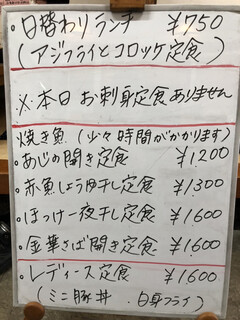 ・日替わりランチ ¥750
(アジフライとコロッケ定食)
※本日 お刺身定食ありません
焼き魚(少々時間がかかります)
・あじの開き定食 ¥1200
・赤魚しょうゆ干し定食 ¥1300
・ほっけ一夜干し定食 ¥1600
・金華さば開き定食 ¥1600
・レディース定食 ¥1600
(ミニ豚丼 . 白身フライ)